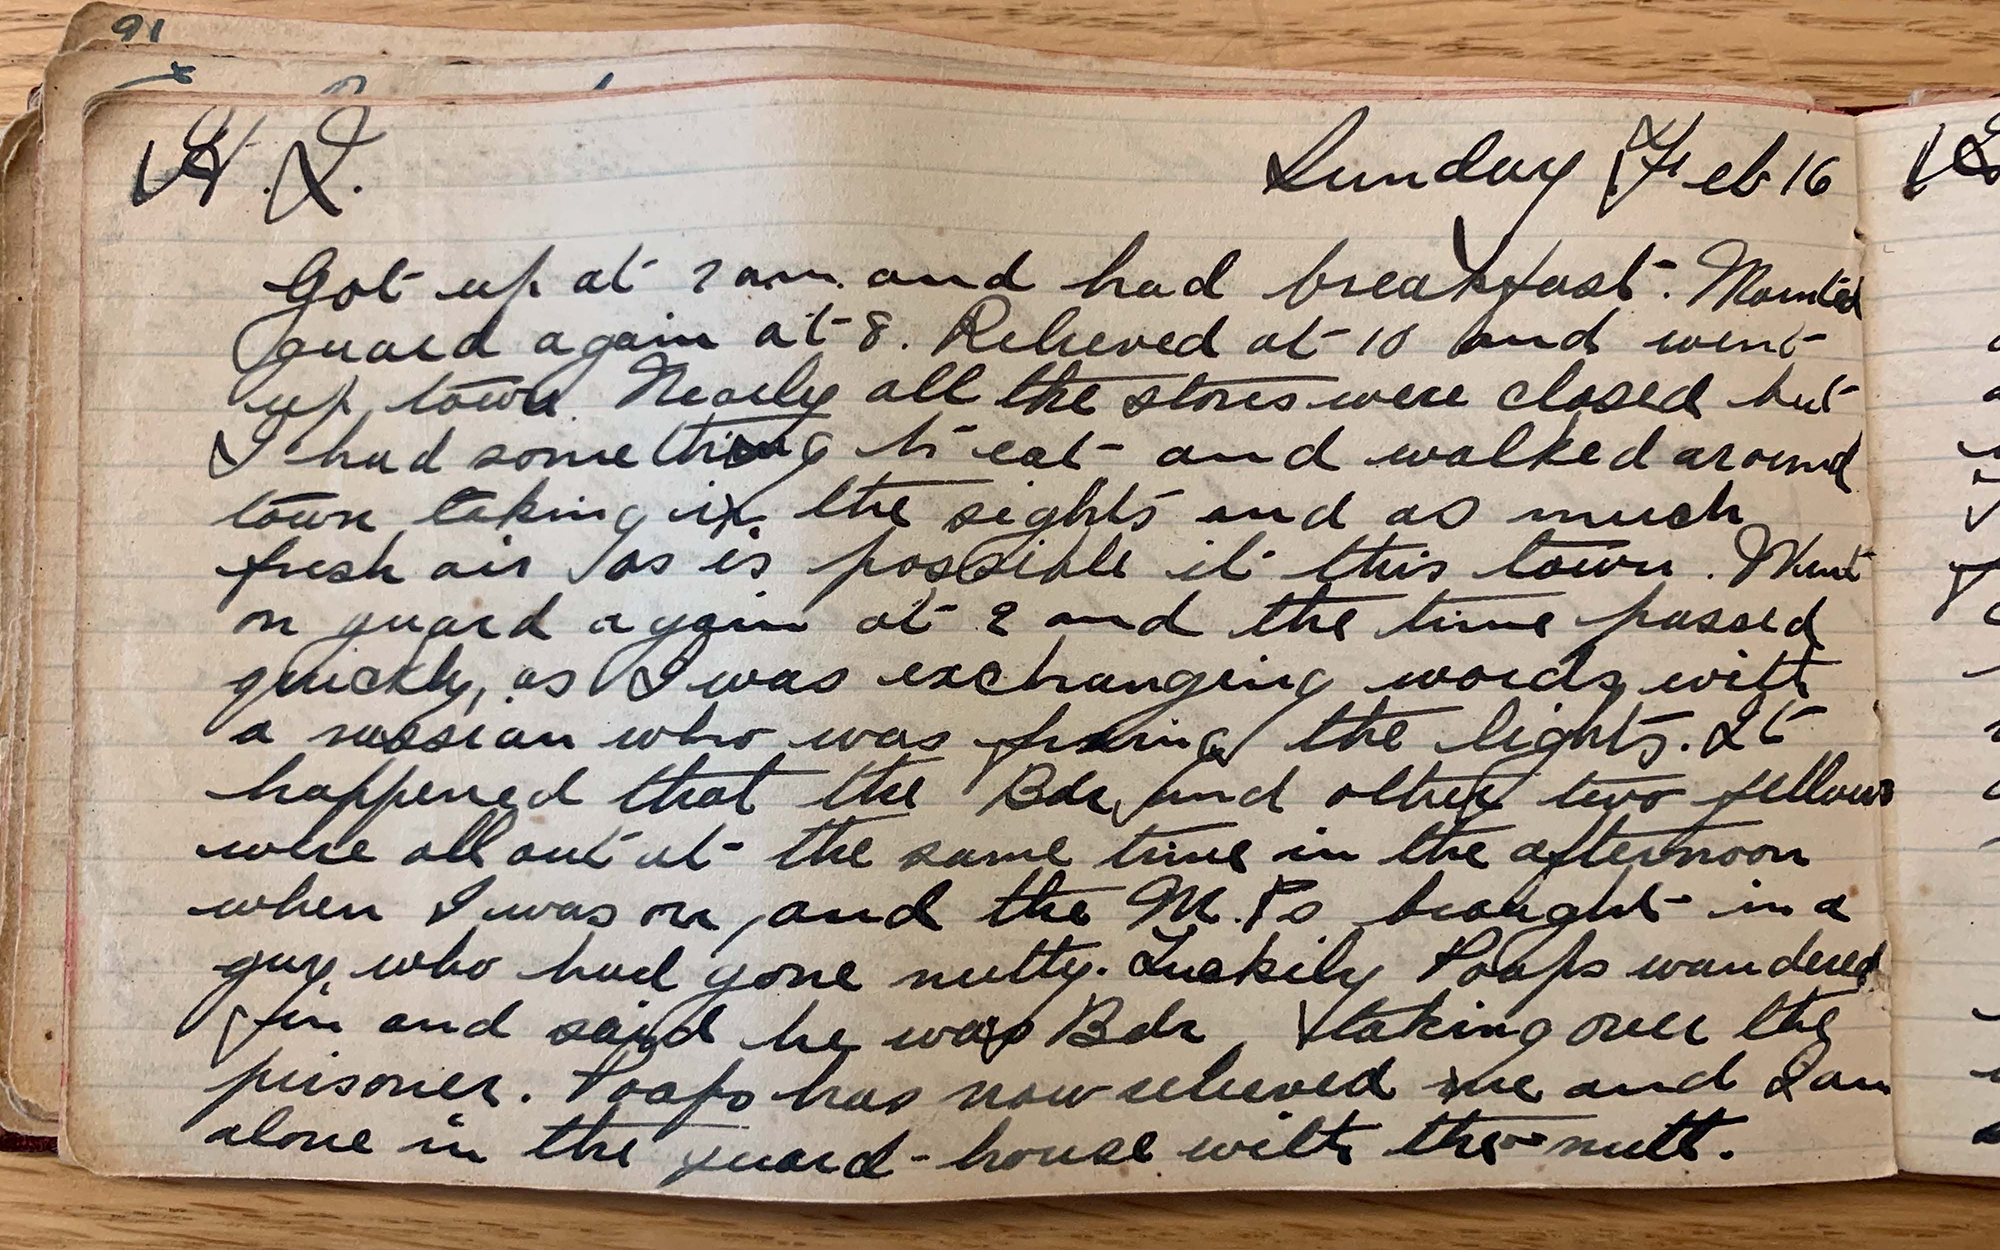 91
H.Q. Sunday Feb 16
Got up at 7 am. and had breakfast. Mounted
guard again at 8. Relieved at 10 and went
up town. Nearly all the stores were closed but
I had something to eat and walked around
town taking in the sights and as much
fresh air as is possible it this town. Went
on guard again at 2 and the time passed
quickly, as I was exchanging words with
a russian who was fixing the lights. It
happened that the Bdr, and other two fellows
were all out at the same time in the afternoon
when I was on, and the M.Ps brought in a
guy who had gone nutty. Luckily Poaps wandered
in and said he was Bdr taking over the
prisoner. Poaps has now relieved me and I am
alone in the guard-house with the nutt.